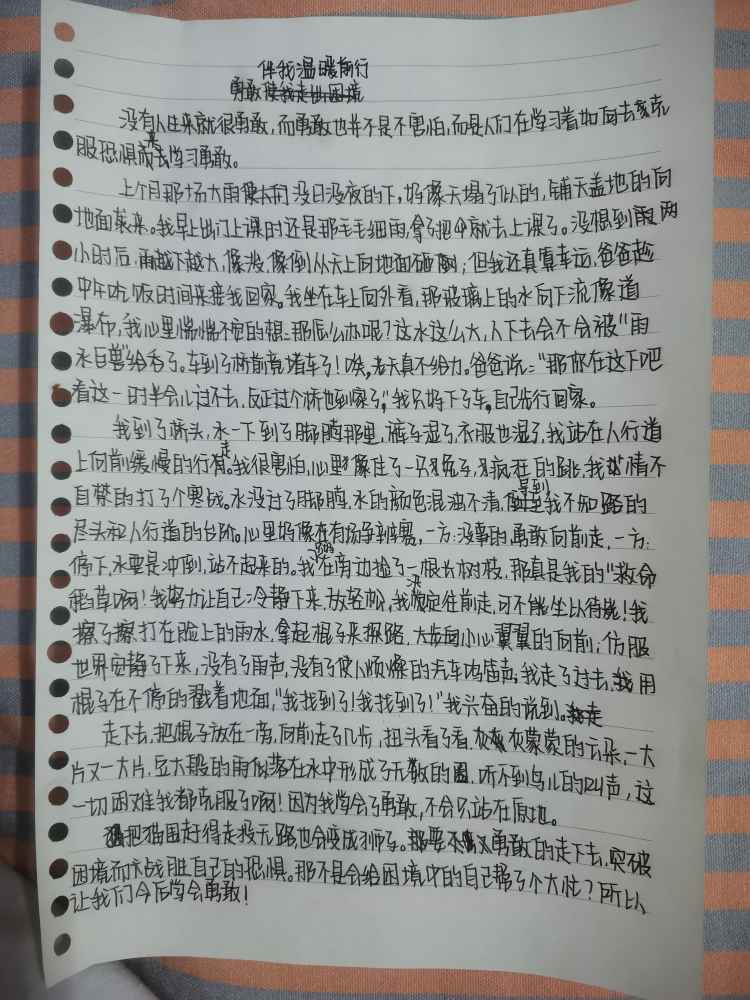 伴我温暖前行
勇敢使我走出困境
没有人生来就很勇敢，而勇敢也并不是不害怕，而是人们在学习着如何去克
服恐惧来去学习勇敢。
上个月那场大雨像天们没日没夜的下，好像天塌了似的，铺天盖地的向
地面袭来。我早上出门上课时还是那毛毛细雨，拿了把伞就去上课了。没想到两
小时后，雨越下越大，像泼，像倒从天上向地面砸倒；但我还真算幸运，爸爸趁
中午吃饭时间来接我回家。我坐在车上向外看，那玻璃上的水向下流像道
瀑布，我心里惴惴不安的想：那怎么办呢？这水这么大，人下去会不会被“雨
水巨兽”给吞了。车到了桥前竟堵车了！唉，老天真不给力。爸爸说：“那你在这下吧
看这一时半会儿过不去，反正过个桥也到家了，”我只好下了车，自己先行回家。
我到了桥头，水一下到了脚腾那里，裤子湿了，衣服也湿了，我站在人行道
上向前缓慢的行走。我很害怕，心里像住了一只兔子，疯狂的跳，我情不
自禁的打了个寒战。水没过了脚腾，水的颜色混浊不清，导到我不知路的
尽头和人行道的台阶。心里好像在有场争辩赛，一方：没事的，勇敢向前走，一方：
停下，水要是冲倒，站不起来的。我在旁边捡了一根长树枝，那真是我的“救命
稻草”啊！我努力让自己冷静下来，放轻松，我决定往前走，可不能坐以待毙！我
擦了擦打在脸上的雨水，拿起棍子来探路，大步向小心翼翼的向前；仿服
世界安静了下来，没有了雨声，没有了使人烦燥的汽车鸣笛声，我走了过去，我用
棍子在不停的戳着地面，“我找到了！我找到了！”我兴奋的说到。走
走下去，把棍子放在一旁，向前走了几步，扭头看了看，灰蒙蒙的云朵，一大
片又一大片，豆大般的雨似落在水中形成了无数的圈，听不到鸟儿的叫声，这
一切困难我都克服了啊！因为我学会了勇敢，不会只站在原地。
把猫围赶得走投无路也会变成狮子。那要不又勇敢的走下去，突破
困境而去战胜自己的恐惧。那不是会给困境中的自己帮了个大忙？所以
让我们今后学会勇敢！